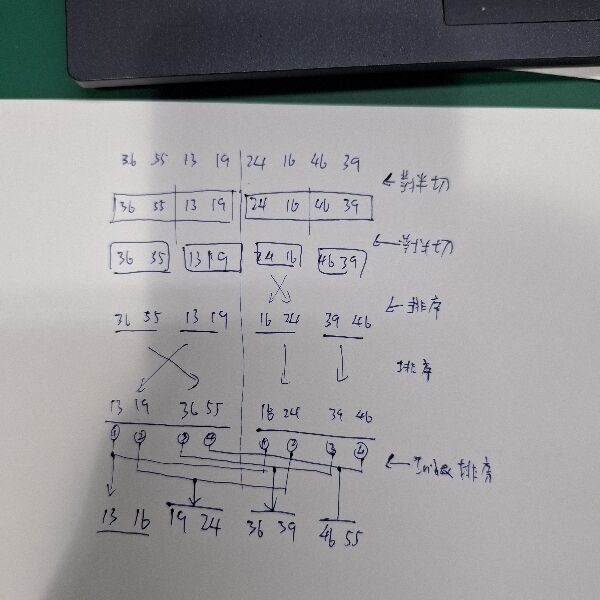 36 55 13 19 24 16 46 39
←對半切
36 55 13 19 24 16 46 39
←對半切
36 55 13 19 24 16 46 39
←排序
36 55 13 19 16 24 39 46
排序
13 19 36 55 16 24 39 46
① ② ③ ④ ① ② ③ ④
←Index排序
13 16 19 24 36 39 46 55